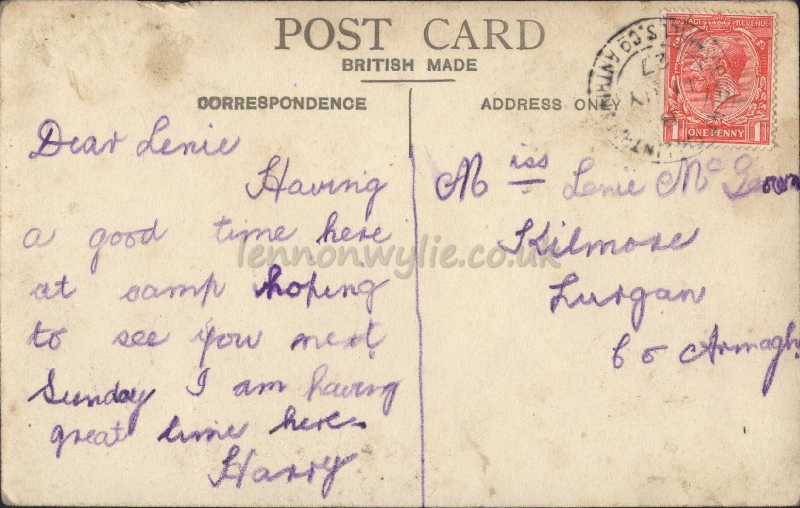 POST CARD
BRITISH MADE
CORRESPONDENCE
Dear Lenie
Having
a good time here
at camp hoping
to see you next
Sunday I am having
great time here.
Harry
ADDRESS ONLY
Miss Lenie McGeown
Kilmore
Lurgan
Co Armagh
POSTAGE REVENUE
1 ONE PENNY 1
27
lennonwylie.co.uk